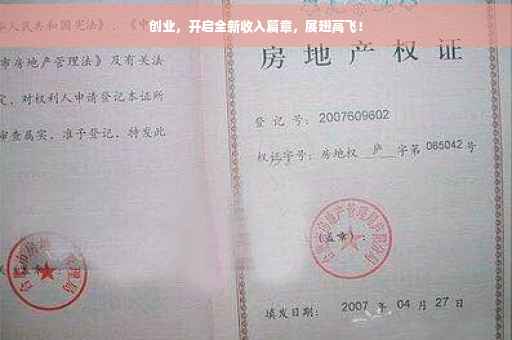 创业，开启全新收入篇章，展翅高飞！
华人民共和国宪法》、《中
市房地产管理法》及有关法
定，对权利人申请登记本证所
审查属实，准予登记，特发此
房地产权证
登记号：2007609602
权证字号：房地权 庐 字第 065042 号
(盖章)：
填发日期：2007 年 04 月 27 日